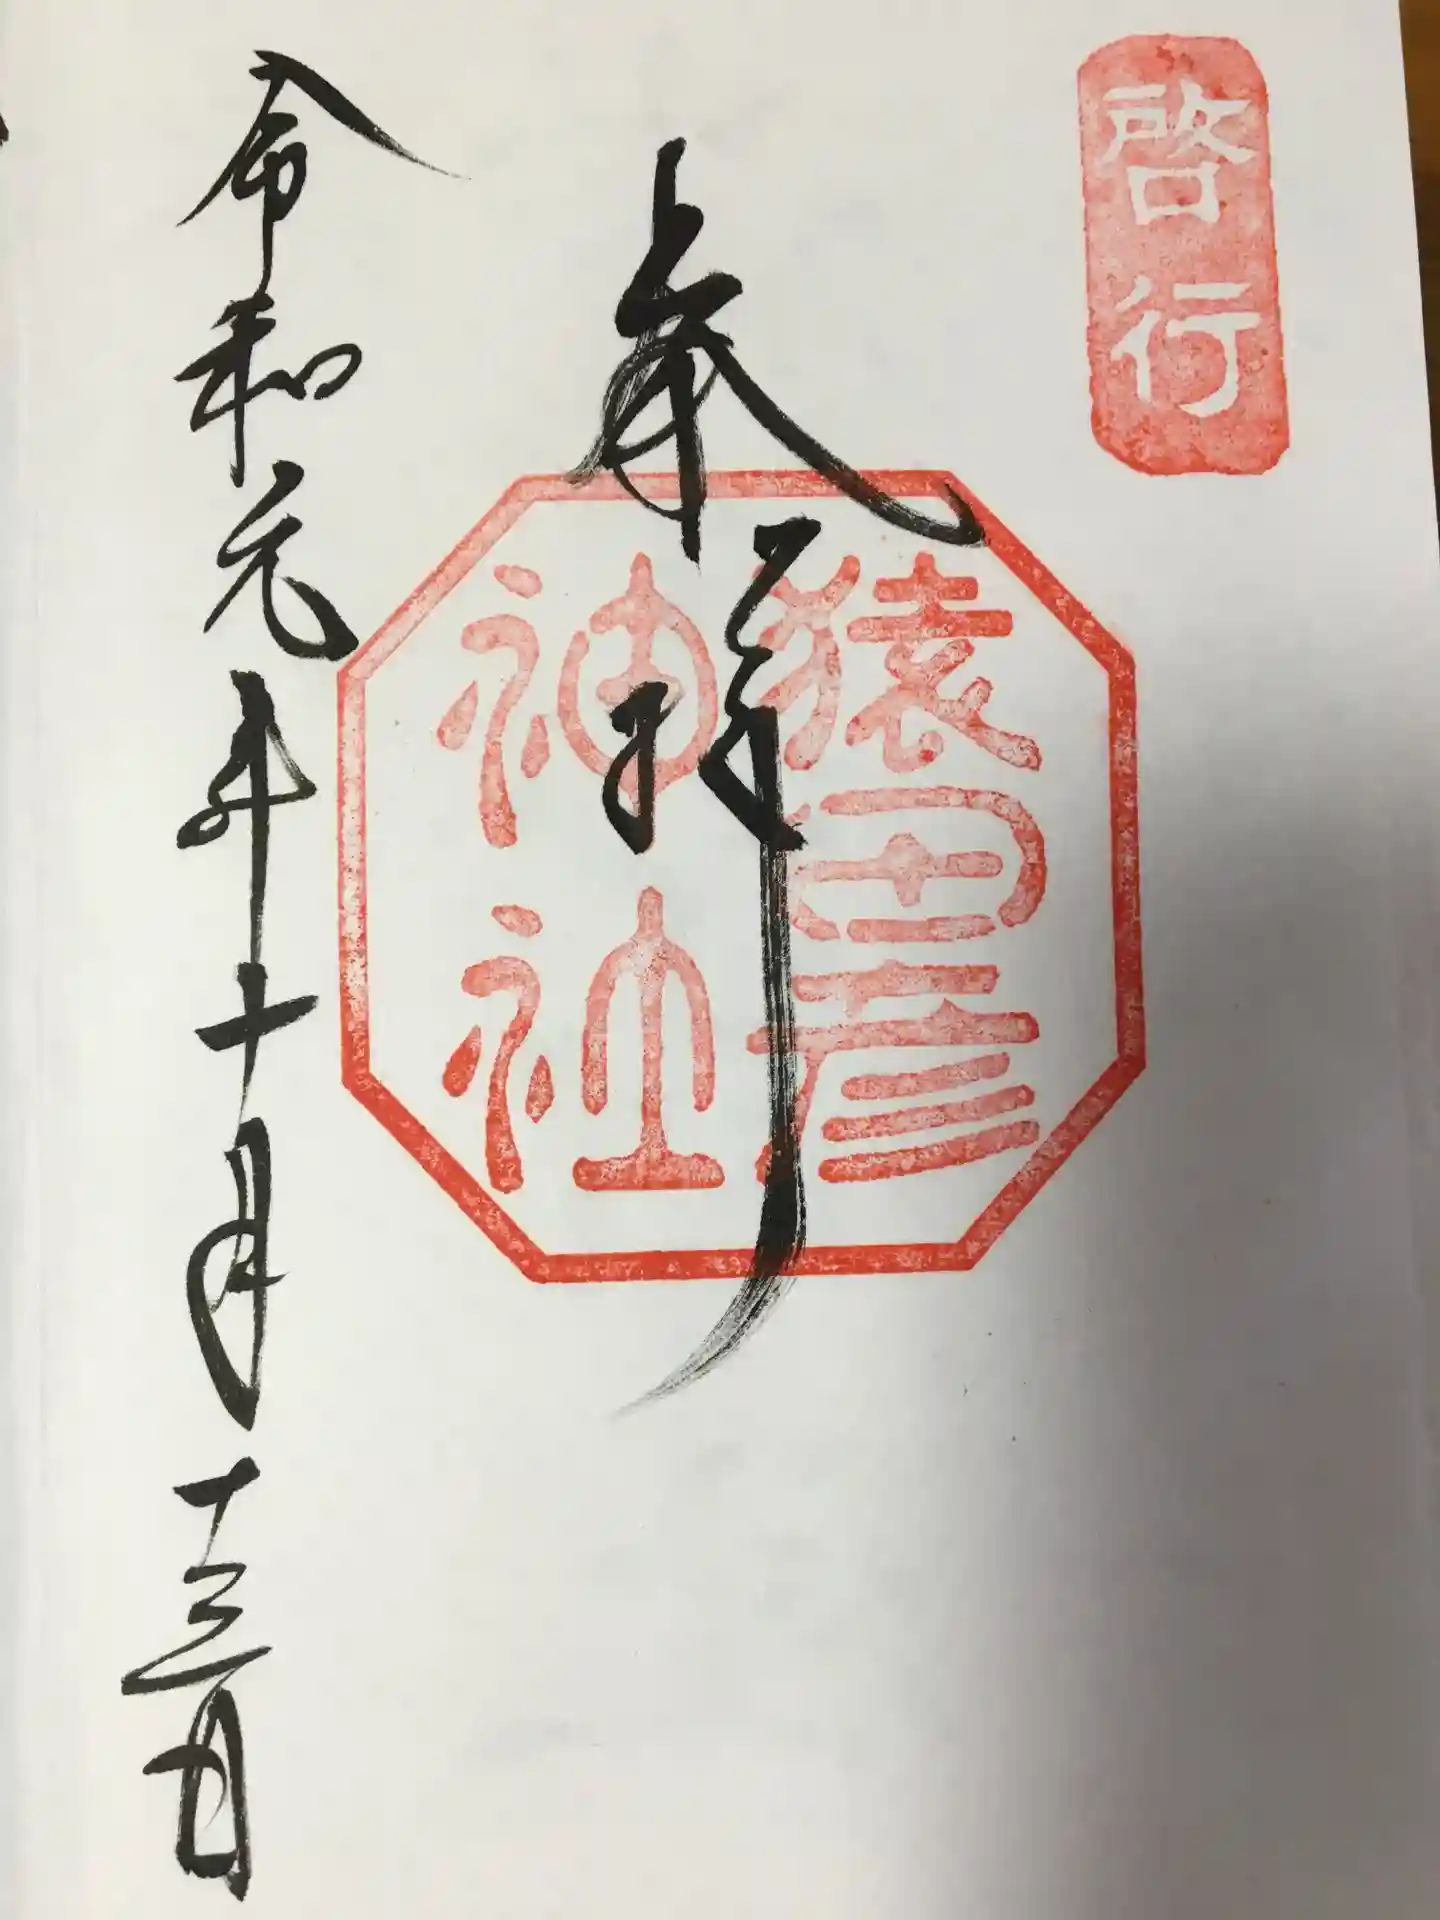 啓行
参拝
猿田彦
神社
令和元年十月十三日